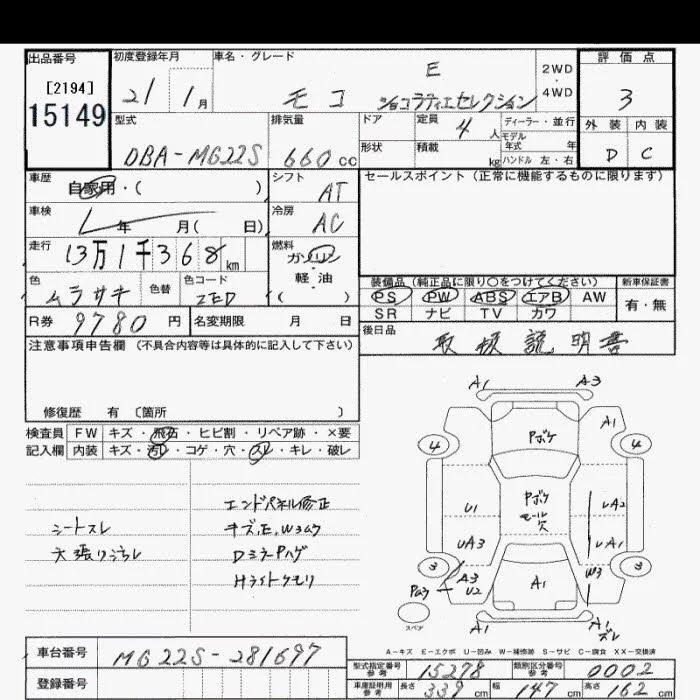 出品番号
[2194]
15149
初度登録年月
21 1月
車名・グレード
E
モコ ショコラティエセレクション
2WD
・
4WD
評価点
3
外装 内装
D C
型式
DBA-MG22S
排気量
660cc
ドア
形状
定員
4人
積載
kg
ディーラー・並行
モデル
年式 年
ハンドル 左・右
車歴
自家用・( )
シフト
AT
セールスポイント(正常に機能するものに限ります)
車検
年 月( 日)
冷房
AC
走行
13万1千368km
燃料
ガソリン
・
軽油
( )
色
ムラサキ
色替
色コード
ZED
装備品(純正品に限り○をつけてください)
PS PW ABS エアB AW
SR ナビ TV カワ
新車保証書
有・無
R券 9780円
名変期限 月 日
後日品
取扱説明書
注意事項申告欄(不具合内容等は具体的に記入して下さい)
修復歴 有〔箇所 〕
検査員
記入欄
FW キズ・飛石・ヒビ割・リペア跡・×要
内装 キズ・汚レ・コゲ・穴・スレ・キレ・破レ
シートスレ
天張リヨゴレ
エンドパネル修正
キズ,E,W3ムク
DミラーPハゲ
Hライトクモリ
A1 A3
A1
4 4
Pボケ
U1
Pボケ
モール
欠
UA2
UA3
UA1
3 3
A3
U2
A1
W3
スペア
A1
A1
スレ
A-キズ E-エクボ U-凹み W-補修跡 S-サビ C-腐食 XX-交換済
車台番号
MG22S-281697
登録番号
型式指定番号
参考
15278
類別区分番号
参考
0002
車庫証明用
参考
長さ 339cm 幅 147cm 高さ 162cm